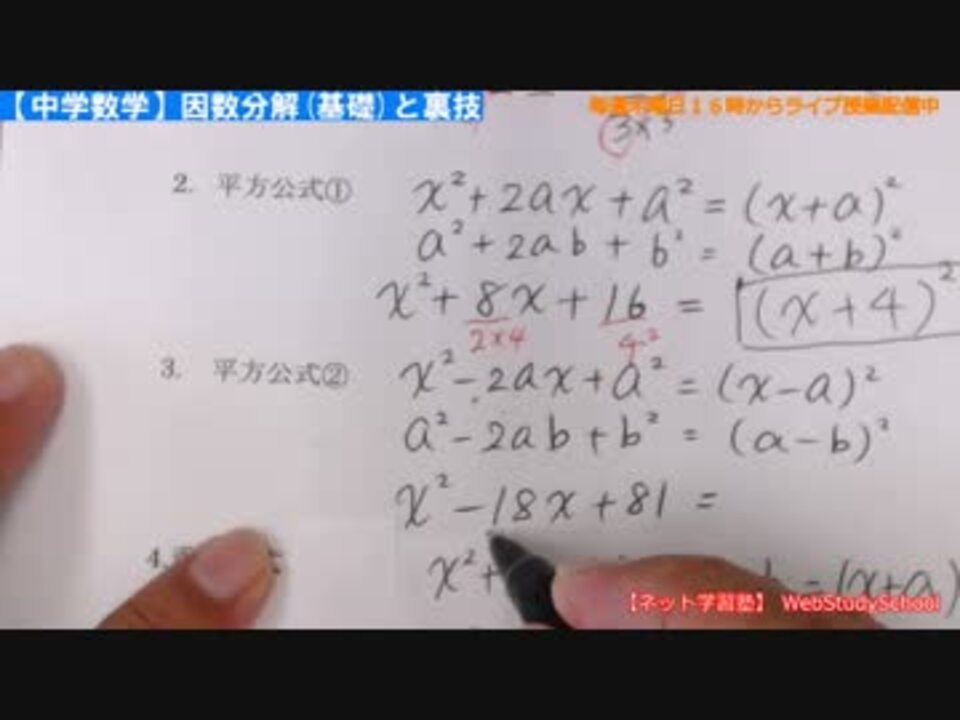 【中学数学】因数分解(基礎)と裏技
毎週木曜日16時からライブ授業配信中
3x
2. 平方公式① x²+2ax+a²=(x+a)²
a²+2ab+b²=(a+b)²
x²+8x+16=(x+4)²
2×4 4²
3. 平方公式② x²-2ax+a²=(x-a)²
a²-2ab+b²=(a-b)²
x²-18x+81=
4.
x²+ =(x+a)
【ネット学習塾】 WebStudySchool